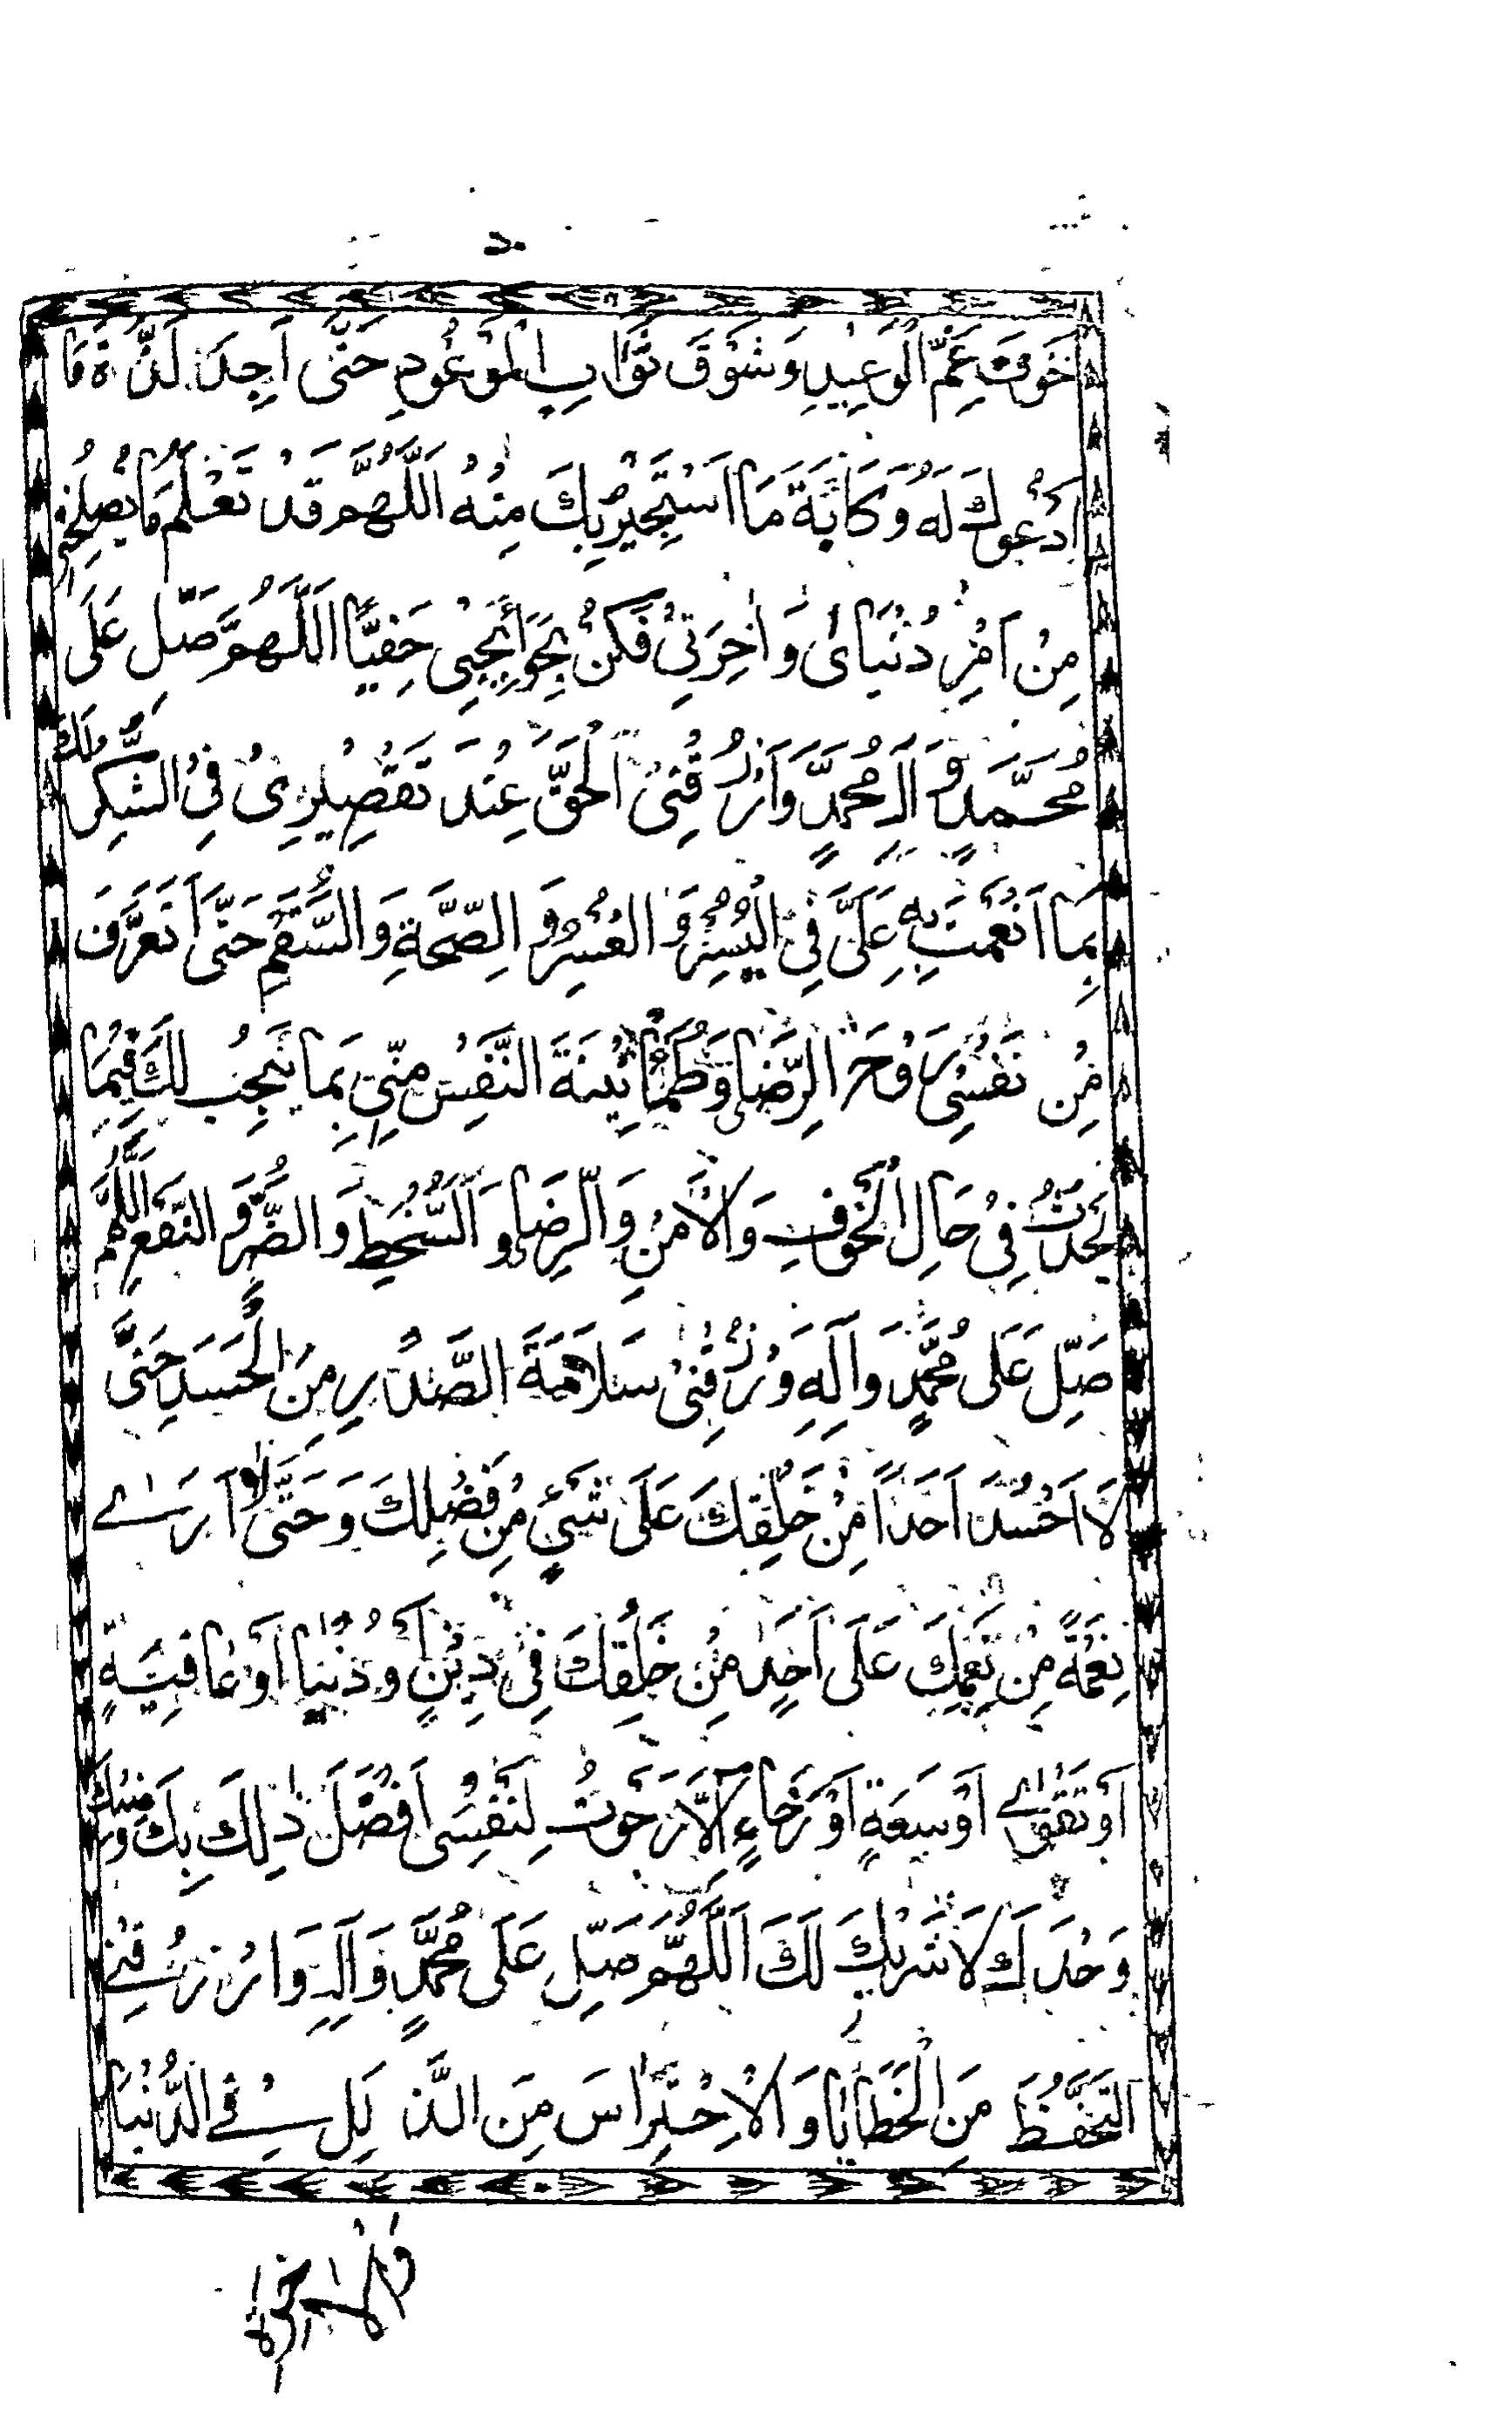 خَوْفَ غَمِّ الْوَعِيْدِ وَشَوْقَ ثَوَابِ الْمَوْعُودِ حَتّٰى اَجِدَ لَذَّةَ مَا
اَدْعُوكَ لَهُ وَكَابَةَ مَا اَسْتَجِيْرُ بِكَ مِنْهُ اَللّٰهُمَّ قَدْ تَعْلَمُ مَا يُصْلِحُنِى
مِنْ اَمْرِ دُنْيَاىَ وَاٰخِرَتِىْ فَكُنْ بِحَوَائِجِىْ حَفِيًّا اَللّٰهُمَّ صَلِّ عَلَى
مُحَمَّدٍ وَآلِ مُحَمَّدٍ وَارْزُقْنِىْ الْحَقَّ عِنْدَ تَقْصِيْرِىْ فِى الشُّكْرِ لَكَ
بِمَا اَنْعَمْتَ بِهِ عَلَىَّ فِى الْيُسْرِ وَ الْعُسْرِ وَ الصِّحَّةِ وَ السَّقَمِ حَتّٰى اَتَعَرَّفَ
مِنْ نَفْسِىْ رَوْحَ الرِّضَا وَطُمَأْنِيْنَةَ النَّفْسِ مِنِّى بِمَا يَجِبُ لَكَ فِيْمَا
يَحْدُثُ فِىْ حَالِ الْخَوْفِ وَالْاَمْنِ وَالرِّضَا وَ السُّخْطِ وَ الضَّرِّ وَ النَّفْعِ اَللّٰهُمَّ
صَلِّ عَلَى مُحَمَّدٍ وَآلِهِ وَرْزُقْنِىْ سَلَامَةَ الصَّدْرِ مِنَ الْحَسَدِ حَتّٰى
لَا اَحْسُدَ اَحَدًا مِنْ خَلْقِكَ عَلَى شَىْءٍ مِنْ فَضْلِكَ وَحَتّٰى لَا اَرَىٰ
نِعْمَةً مِنْ نِعَمِكَ عَلَى اَحَدٍ مِنْ خَلْقِكَ فِى دِيْنٍ اَوْ دُنْيَا اَوْ عَافِيَةٍ
اَوْ تَقْوٰى اَوْ سَعَةٍ اَوْ رَخَاءٍ اِلَّا رَجَوْتُ لِنَفْسِى اَفْضَلَ ذٰلِكَ بِكَ وَ مِنْكَ
وَحْدَكَ لَا شَرِيْكَ لَكَ اَللّٰهُمَّ صَلِّ عَلَى مُحَمَّدٍ وَآلِهِ وَارْزُقْنِى
التَّحَفُّظَ مِنَ الْخَطَايَا وَالْاِحْتِرَاسَ مِنَ الزَّلَلِ فِى الدُّنْيَا
وَالْاٰخِرَةِ